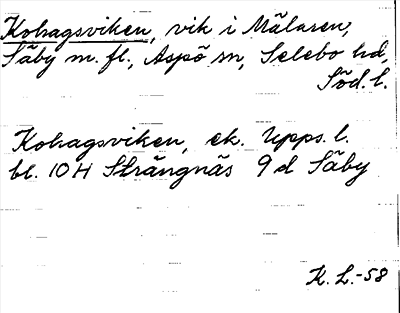 Kohagsviken, vik i Mälaren,
Säby m. fl., Aspö sn, Selebo hd,
Söd. l.
Kohagsviken, ek. Upps. l.
bl. 10H Strängnäs 9d Säby
K. L.-58